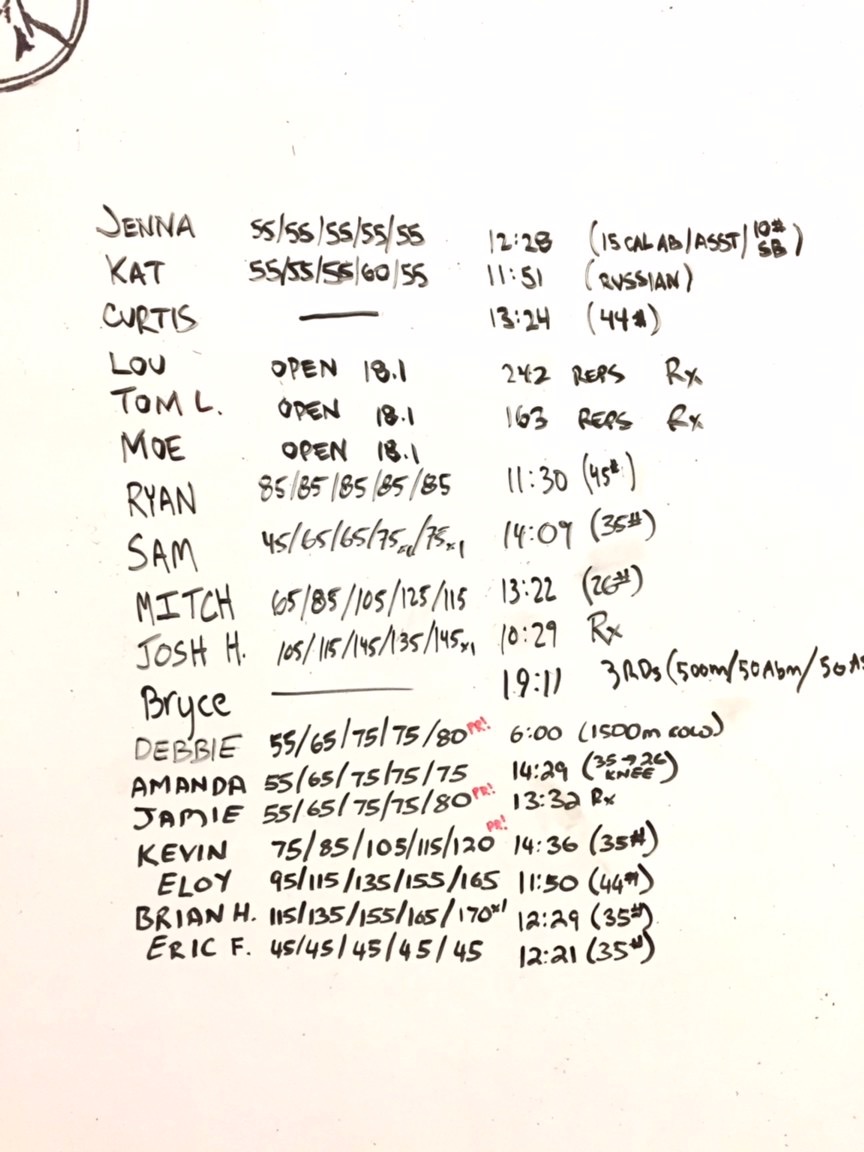 JENNA 55/55/55/55/55 12:28 (15 CAL AB/ASST/10# SB)
KAT 55/55/55/60/55 11:51 (RUSSIAN)
CURTIS — 13:24 (44#)
LOU OPEN 18.1 242 REPS Rx
TOM L. OPEN 18.1 163 REPS Rx
MOE OPEN 18.1
RYAN 85/85/85/85/85 11:30 (45#)
SAM 45/65/65/75/75x1 14:09 (35#)
MITCH 65/85/105/125/115 13:22 (26#)
JOSH H. 105/115/145/135/145x1 10:29 Rx
Bryce — 19:11 3 RDs (500m/50Abm/50
DEBBIE 55/65/75/75/80 PR! 6:00 (1500m ROW)
AMANDA 55/65/75/75/75 14:29 (35→26 KNEE)
JAMIE 55/65/75/75/80 PR! 13:32 Rx
KEVIN 75/85/105/115/120 PR! 14:36 (35#)
ELOY 95/115/135/155/165 11:50 (44#)
BRIAN H. 115/135/155/165/170x1 12:29 (35#)
ERIC F. 45/45/45/45/45 12:21 (35#)